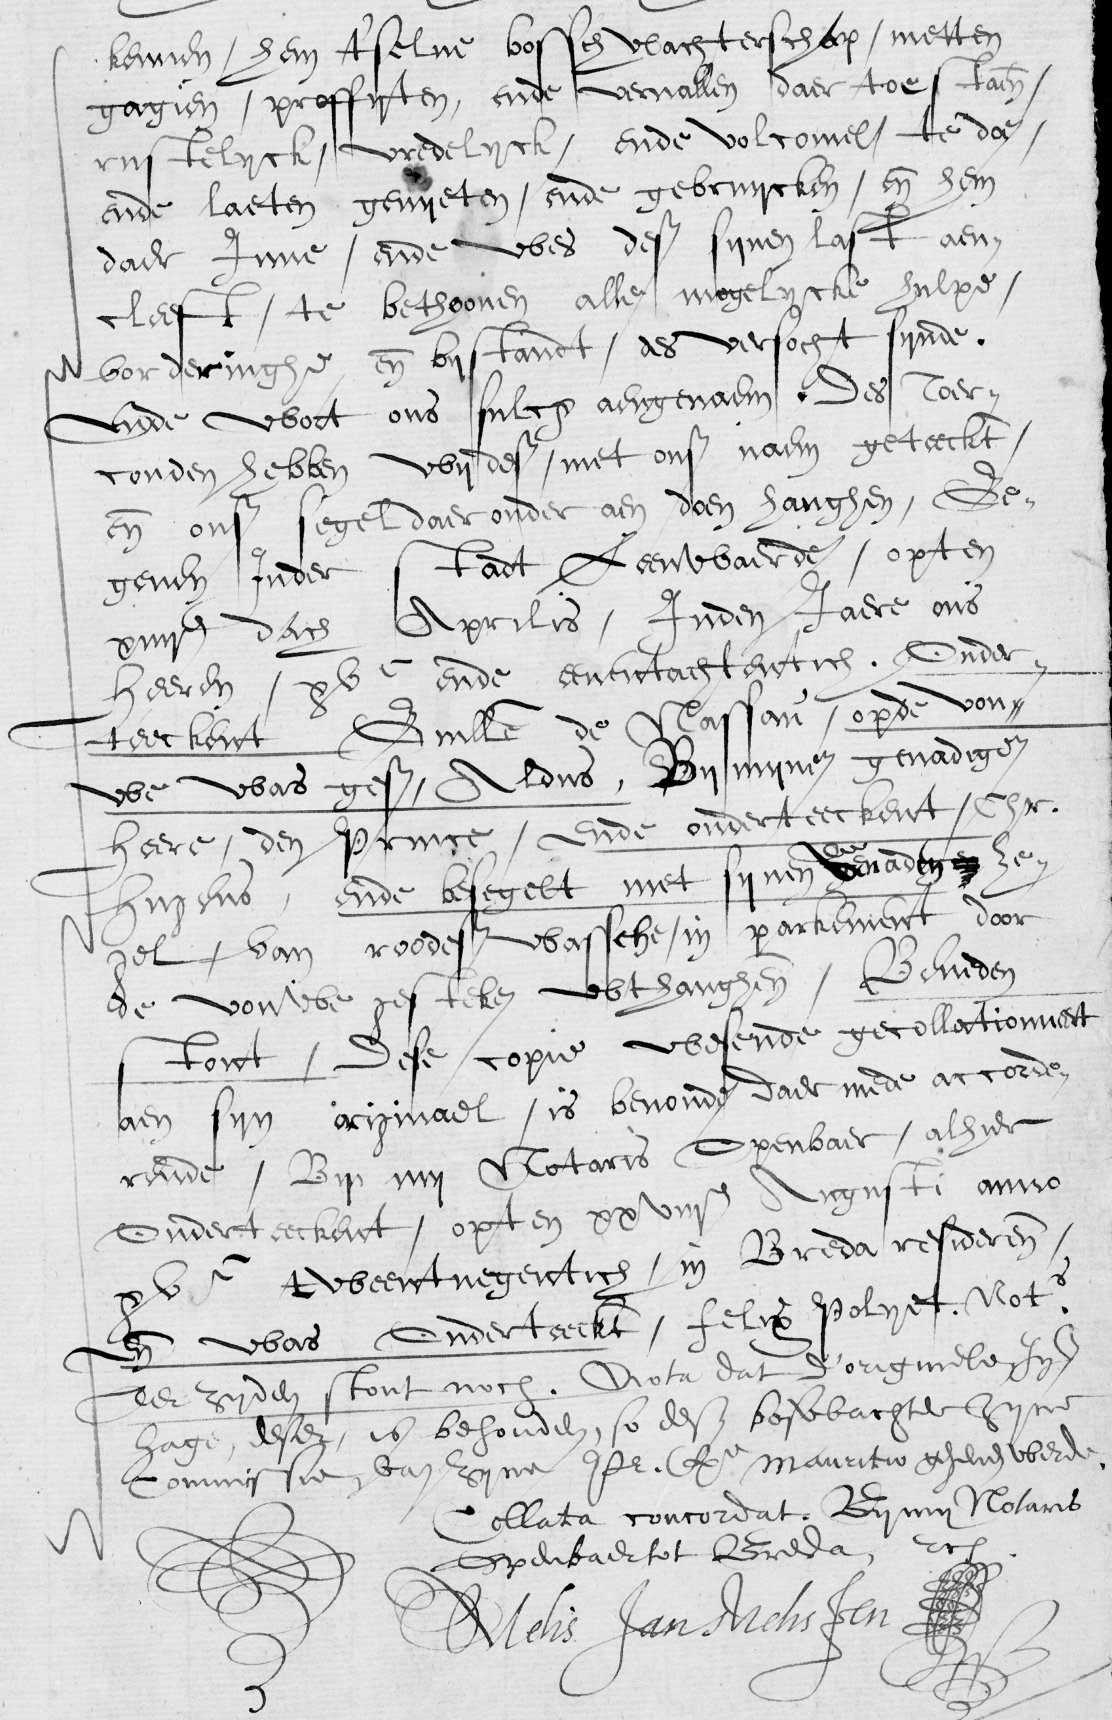 kennen, hem t'selve bosschwachterschap, metten
gagien, proffyten, ende vervallen daer toe staen,
rustelyck, vredelyck, ende volcomel, te doe,
ende laeten genyeten, ende gebruycken, en hem
daer Inne, ende wes des synen last aen
cleeft, te bethoonen alle mogelycke hulpe,
vorderinghe, en bystandt, des versocht synde.
Ende wort ons sulcx aengenaem. Des Toer
conden hebben wy des, met ons naem geteeckt,
en ons segel daer onder aen doen hanghen, Ge
geven Inder stadt Leeuwaerde, opten
xiiije dach Aprilis, Inden Jaere ons
Heeren, xvc ende eenentachtentich. Onder
teeckent Guille de Nassau, opde vou
we was ges, Aldus, By mynen genadigen
Heere, den Prince, ende onderteeckent, Chr.
Huygens, ende besegelt met synen Genaden ze
gel, van roodes wassche, in parkement door
de vouwe gesteken wthanghen, Beneden
stont, Dese copie wesende gecollectionneert
aen syn originael, is bevonden daer mede accorde
rende, By my Notaris Openbaer, alhier
Onderteeckent, opten xxviije Augusti anno
xvc tweentnegentich, in Breda resideren,
En was Onderteeckt, Felix Polyet. Nots.
Ter zyden stont noch. Nota dat d'originele Inden
hage, deser, is behouden, so des boswachter zyne
Commissie, van zyne Ex.cie Mauritio gheven werde.
Collata concordat. By my Notaris
Openbaer tot Breda,
Melis Jan Melissen